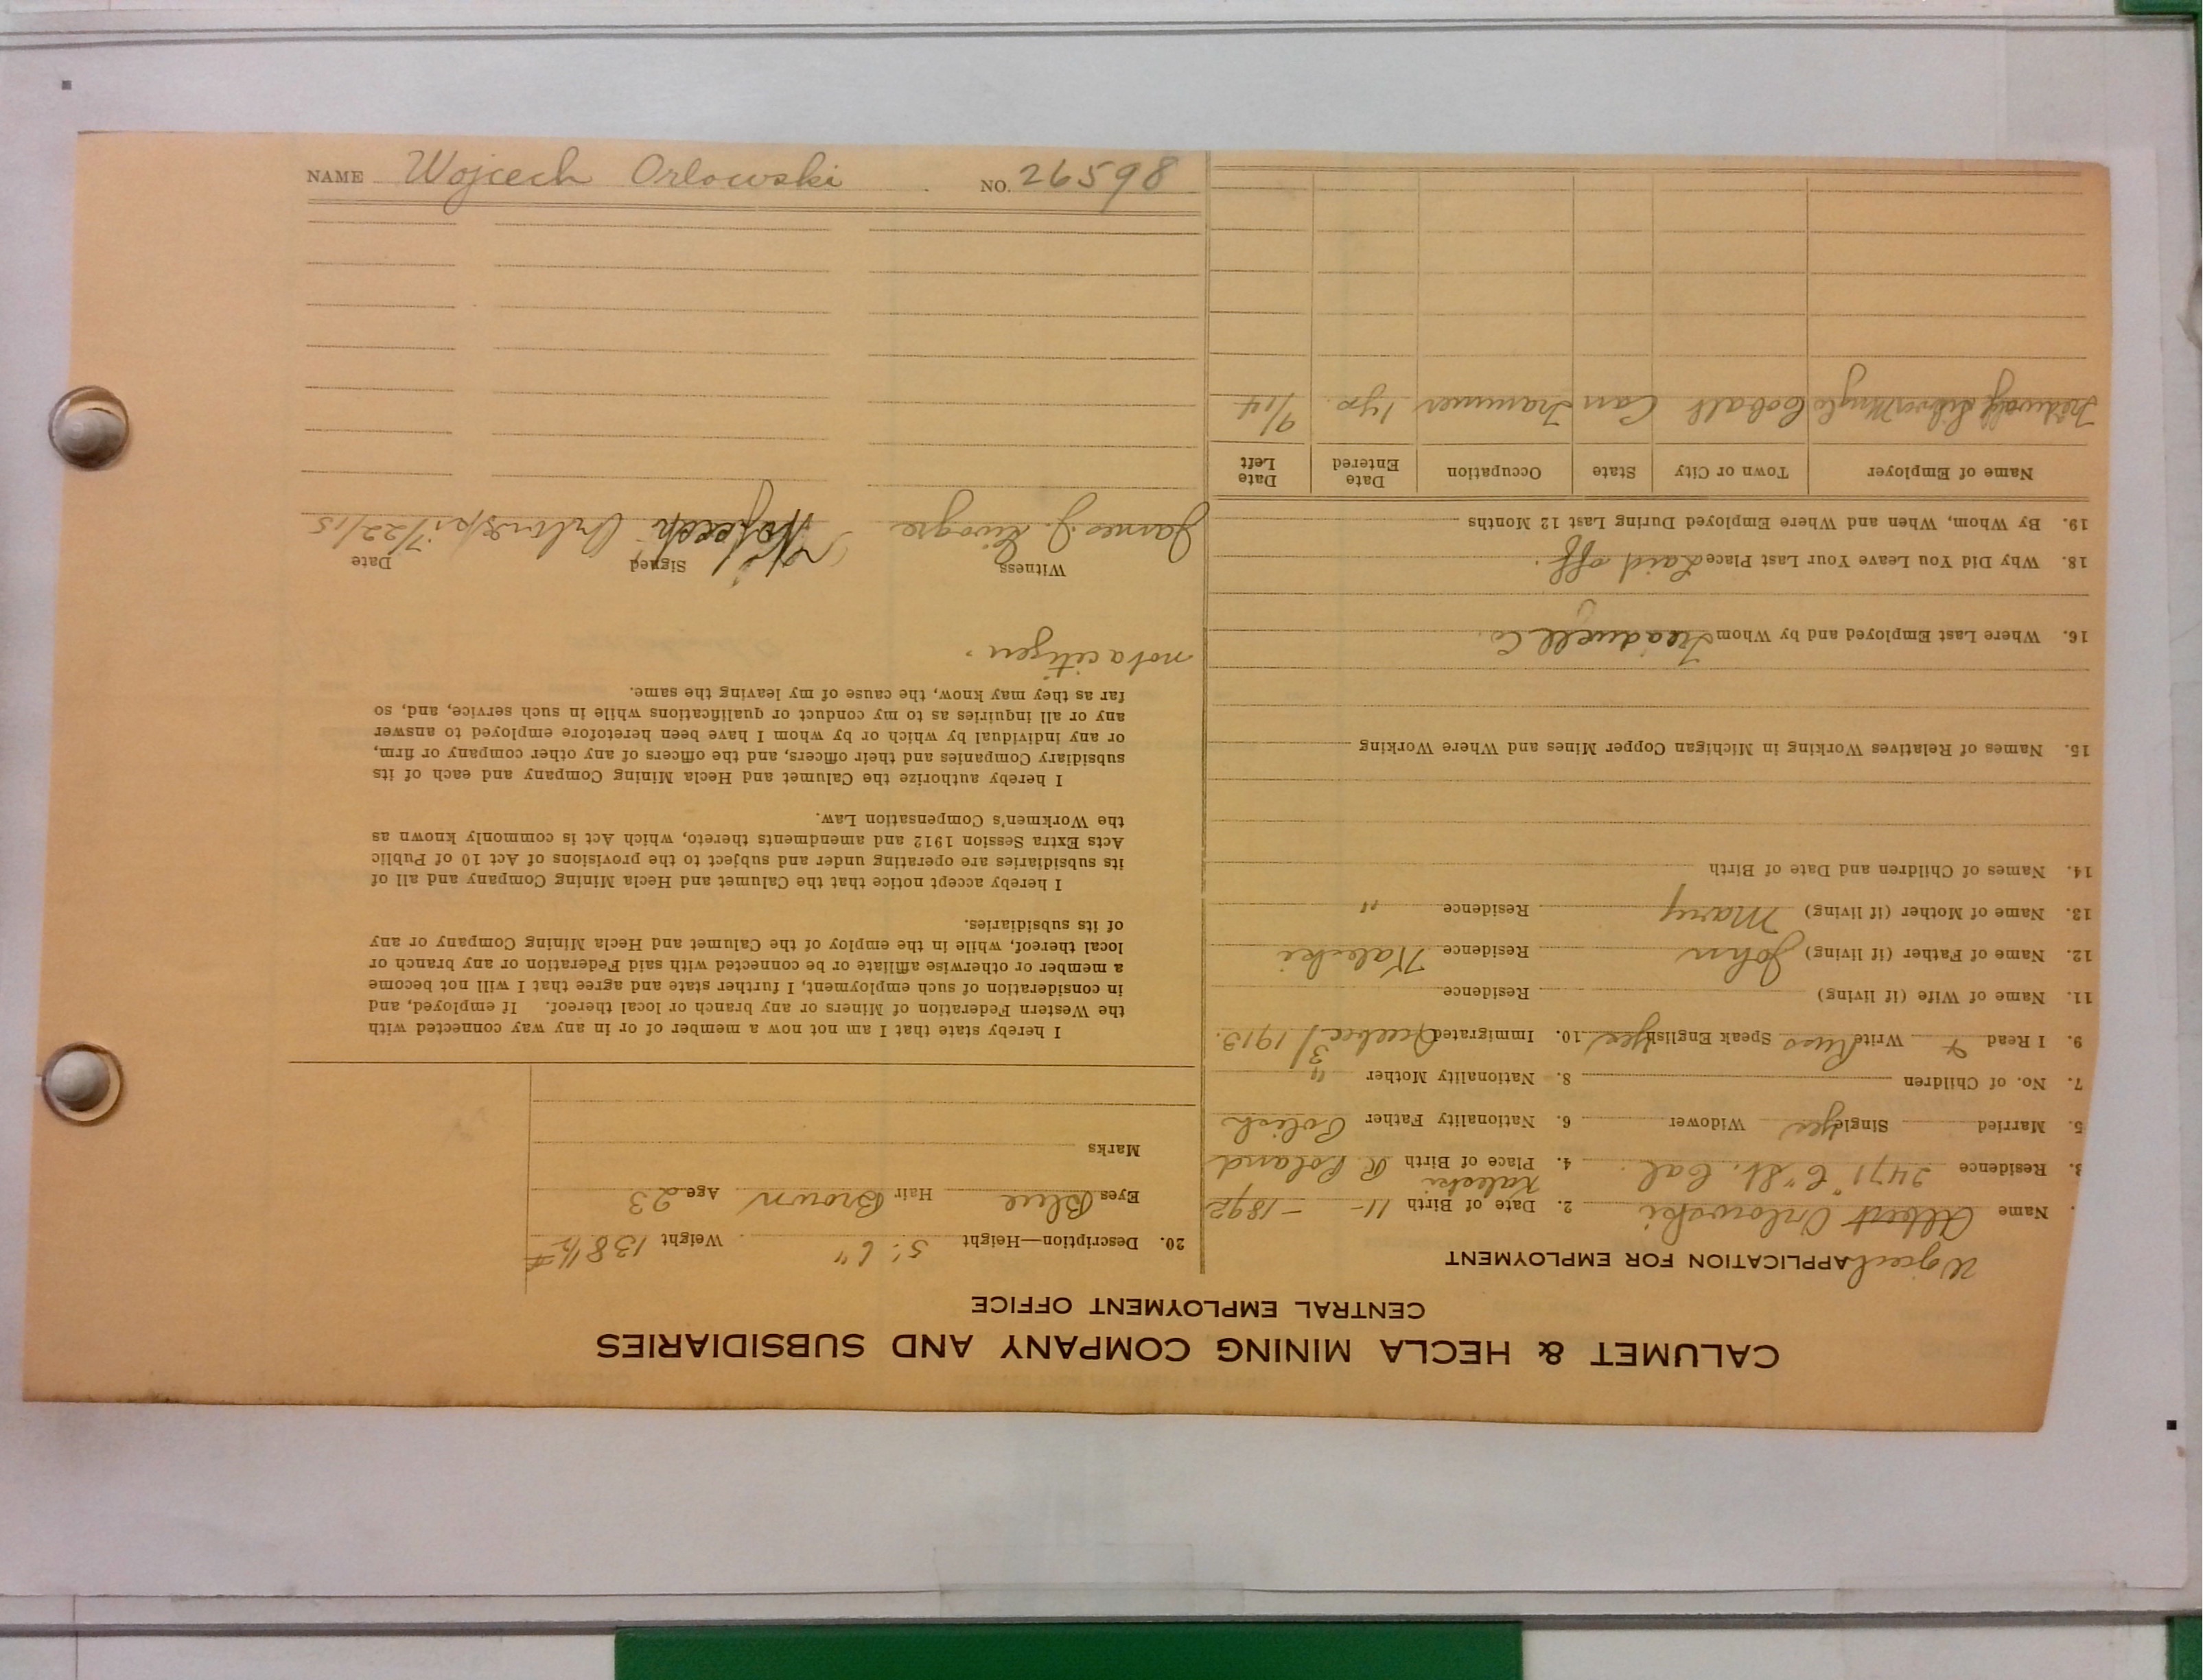 CALUMET & HECLA MINING COMPANY AND SUBSIDIARIES
CENTRAL EMPLOYMENT OFFICE
APPLICATION FOR EMPLOYMENT
Wojcech
1. Name Albert Orlowski 2. Date of Birth 11 - - 1892
Kalecki
3. Residence 2471 "C" St. Cal. 4. Place of Birth R. Poland
5. Married Single yes Widower 6. Nationality Father Polish
7. No. of Children 8. Nationality Mother "
9. I Read & Write Russ Speak English yes 10. Immigrated 3/1913.
11. Name of Wife (if living) Residence
12. Name of Father (if living) John Residence Kalecki
13. Name of Mother (if living) Mary Residence "
14. Names of Children and Date of Birth
15. Names of Relatives Working in Michigan Copper Mines and Where Working
16. Where Last Employed and by Whom Treadwell Co.
18. Why Did You Leave Your Last Place Laid off.
19. By Whom, When and Where Employed During Last 12 Months
Name of Employer Town or City State Occupation Date Entered Date Left
Cobalt Can Trammer 1 yr. 9/14
20. Description—Height 5' 6" Weight 138 1/2 #
Eyes Blue Hair Brown Age 23
Marks
I hereby state that I am not now a member of or in any way connected with
the Western Federation of Miners or any branch or local thereof. If employed, and
in consideration of such employment, I further state and agree that I will not become
a member or otherwise affiliate or be connected with said Federation or any branch or
local thereof, while in the employ of the Calumet and Hecla Mining Company or any
of its subsidiaries.
I hereby accept notice that the Calumet and Hecla Mining Company and all of
its subsidiaries are operating under and subject to the provisions of Act 10 of Public
Acts Extra Session 1912 and amendments thereto, which Act is commonly known as
the Workmen's Compensation Law.
I hereby authorize the Calumet and Hecla Mining Company and each of its
subsidiary Companies and their officers, and the officers of any other company or firm,
or any individual by which or by whom I have been heretofore employed to answer
any or all inquiries as to my conduct or qualifications while in such service, and, so
far as they may know, the cause of my leaving the same.
not a citizen.
Witness Signed Date
James J. Wojcech Orlowski 7/22/15
NAME Wojcech Orlowski NO. 26598